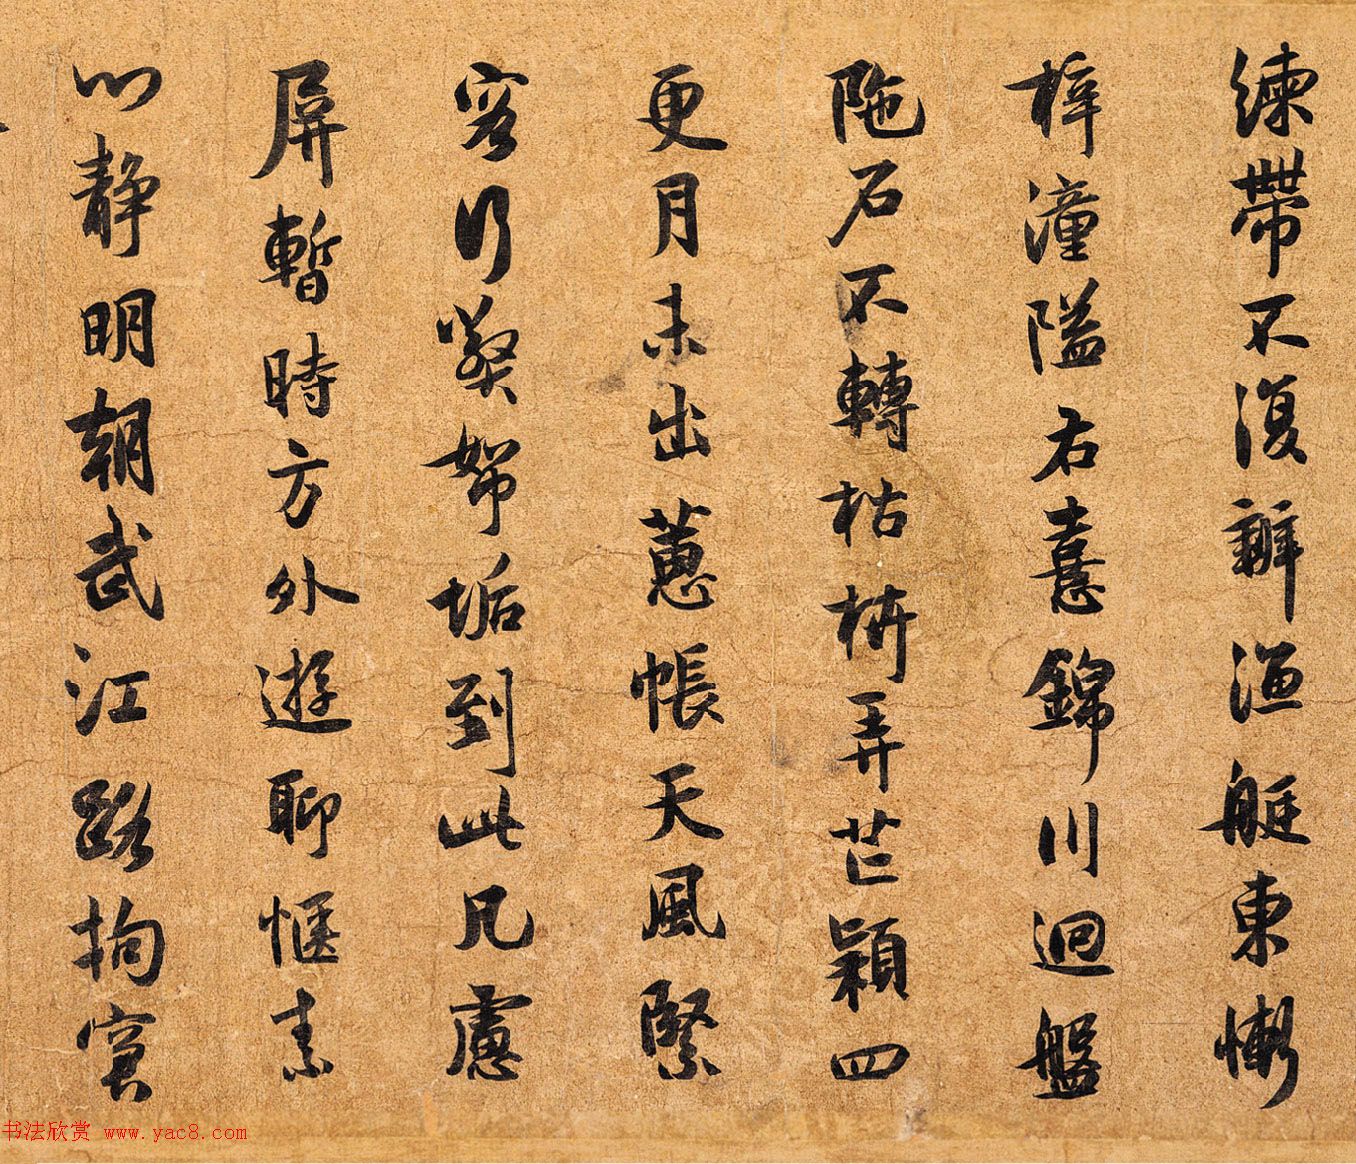 練帶不復辨漁艇東慚
梓潼隘右憙錦川迴盤
陁石不轉枯枿弄芒穎四
更月未出蕙帳天風緊
客行帤垢到此凡慮
屏暫時方外遊聊愜素
心靜明朝武江路拘窘
书法欣赏 www.yac8.com